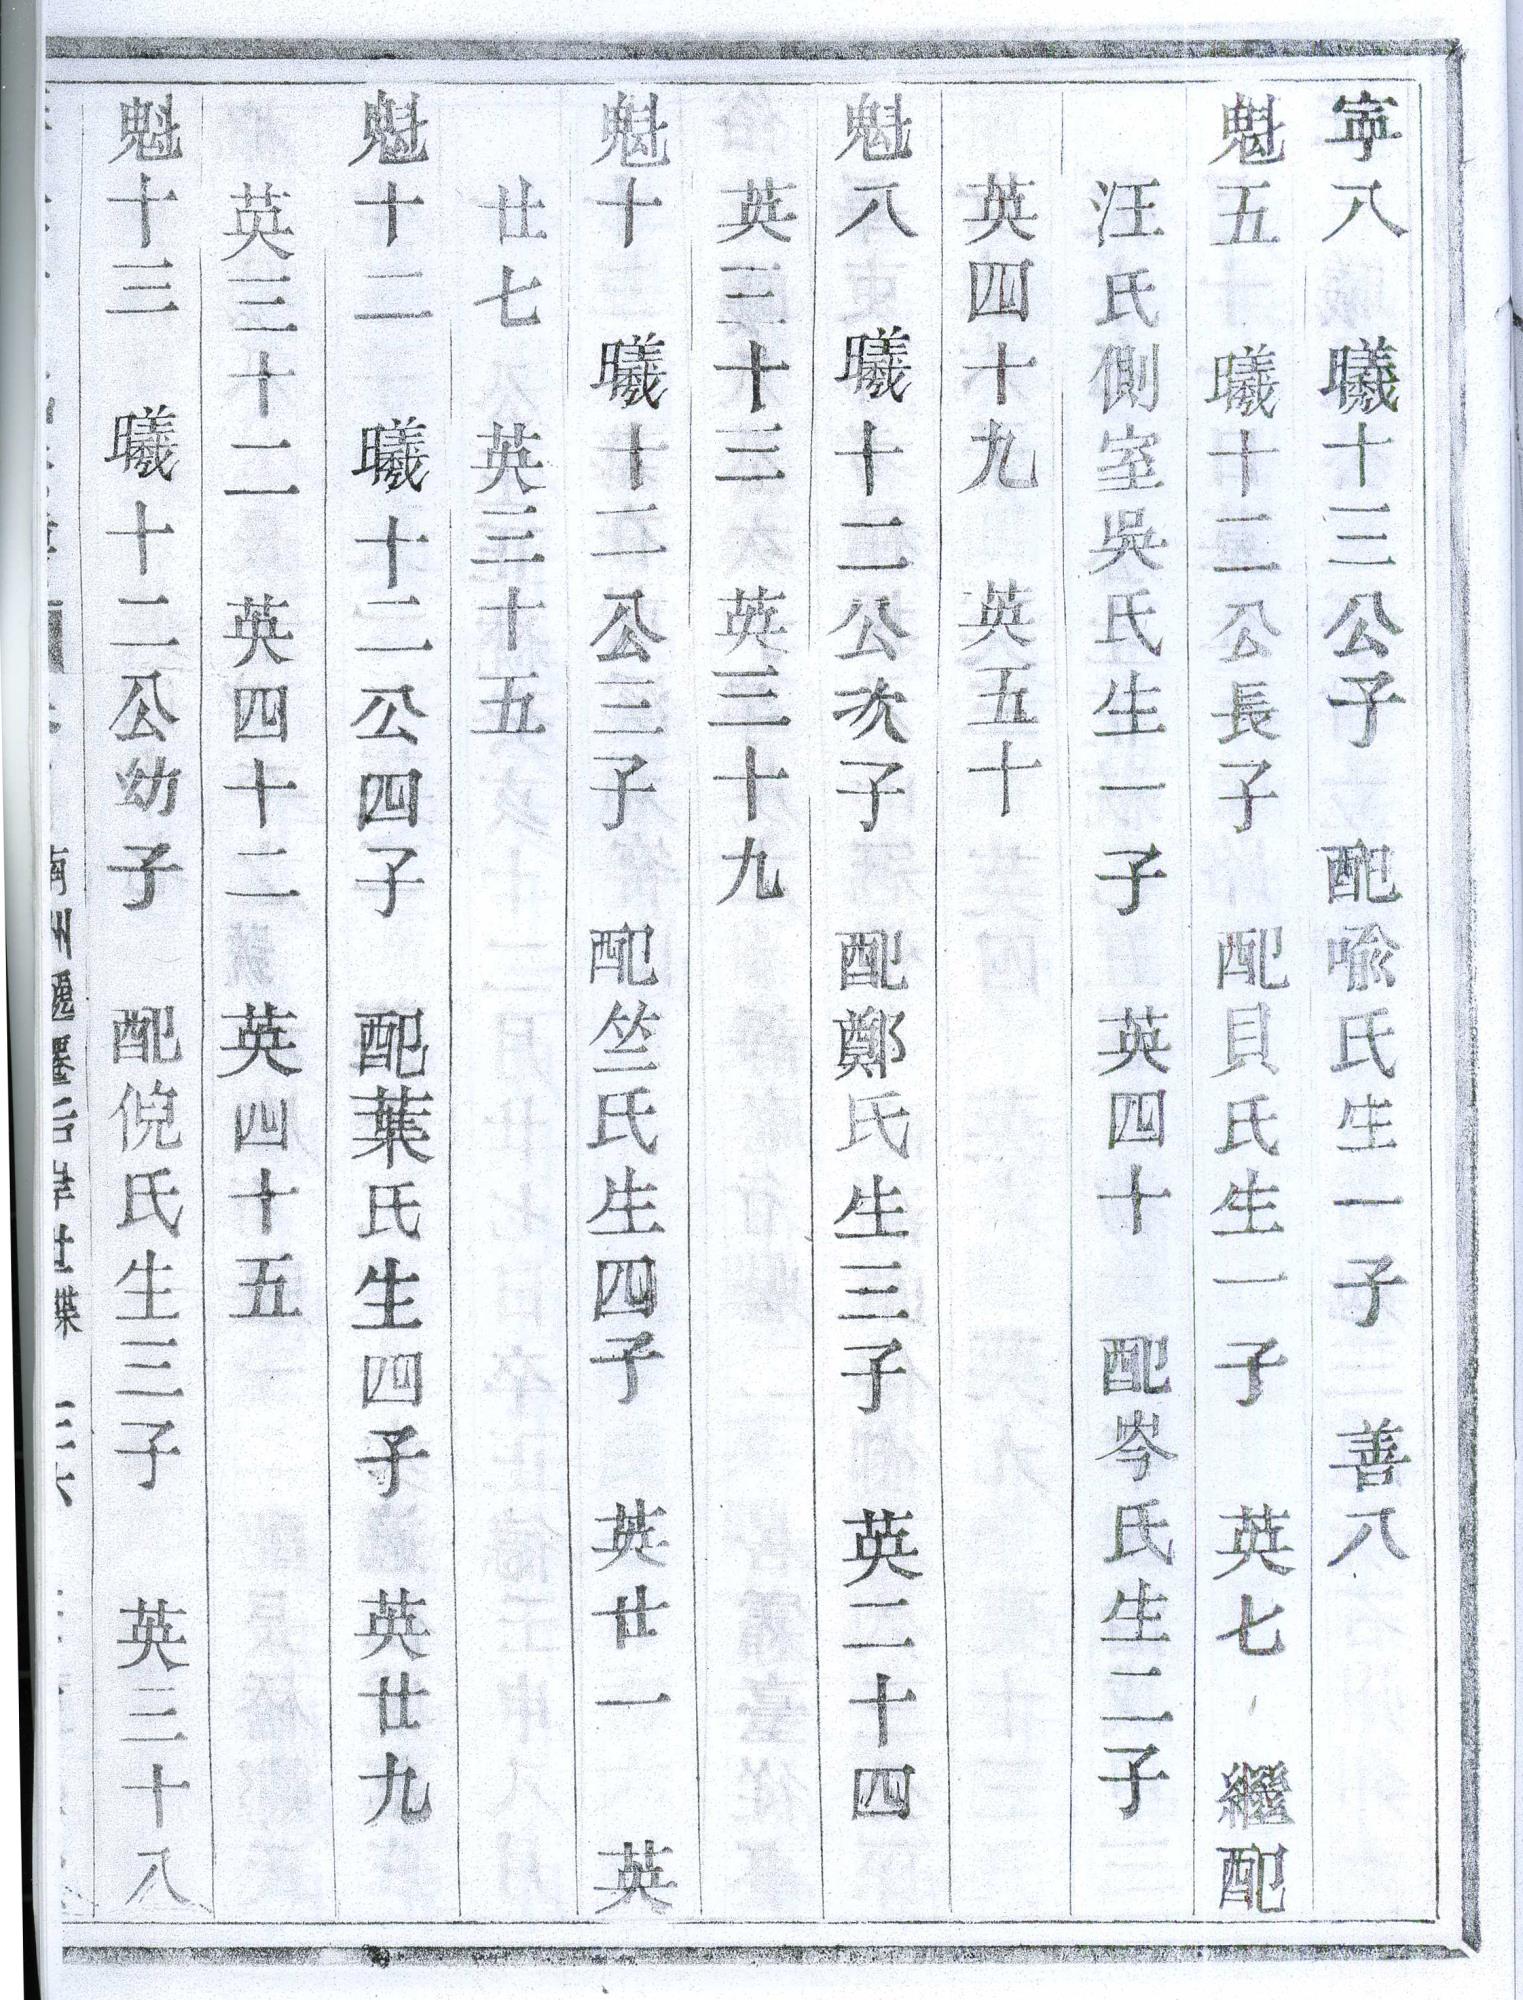 甯八　曦十三公子　配喩氏生一子　善八
魁五　曦十二公長子　配貝氏生一子　英七　繼配
汪氏側室吳氏生一子　英四十　配岑氏生二子
英四十九　英五十
魁八　曦十二公次子　配鄭氏生三子　英二十四
英三十三　英三十九
魁十　曦十二公三子　配竺氏生四子　英廿一　英
廿七　英三十五
魁十二　曦十二公四子　配葉氏生四子　英廿九
英三十二　英四十二　英四十五
魁十三　曦十二公幼子　配倪氏生三子　英三十八